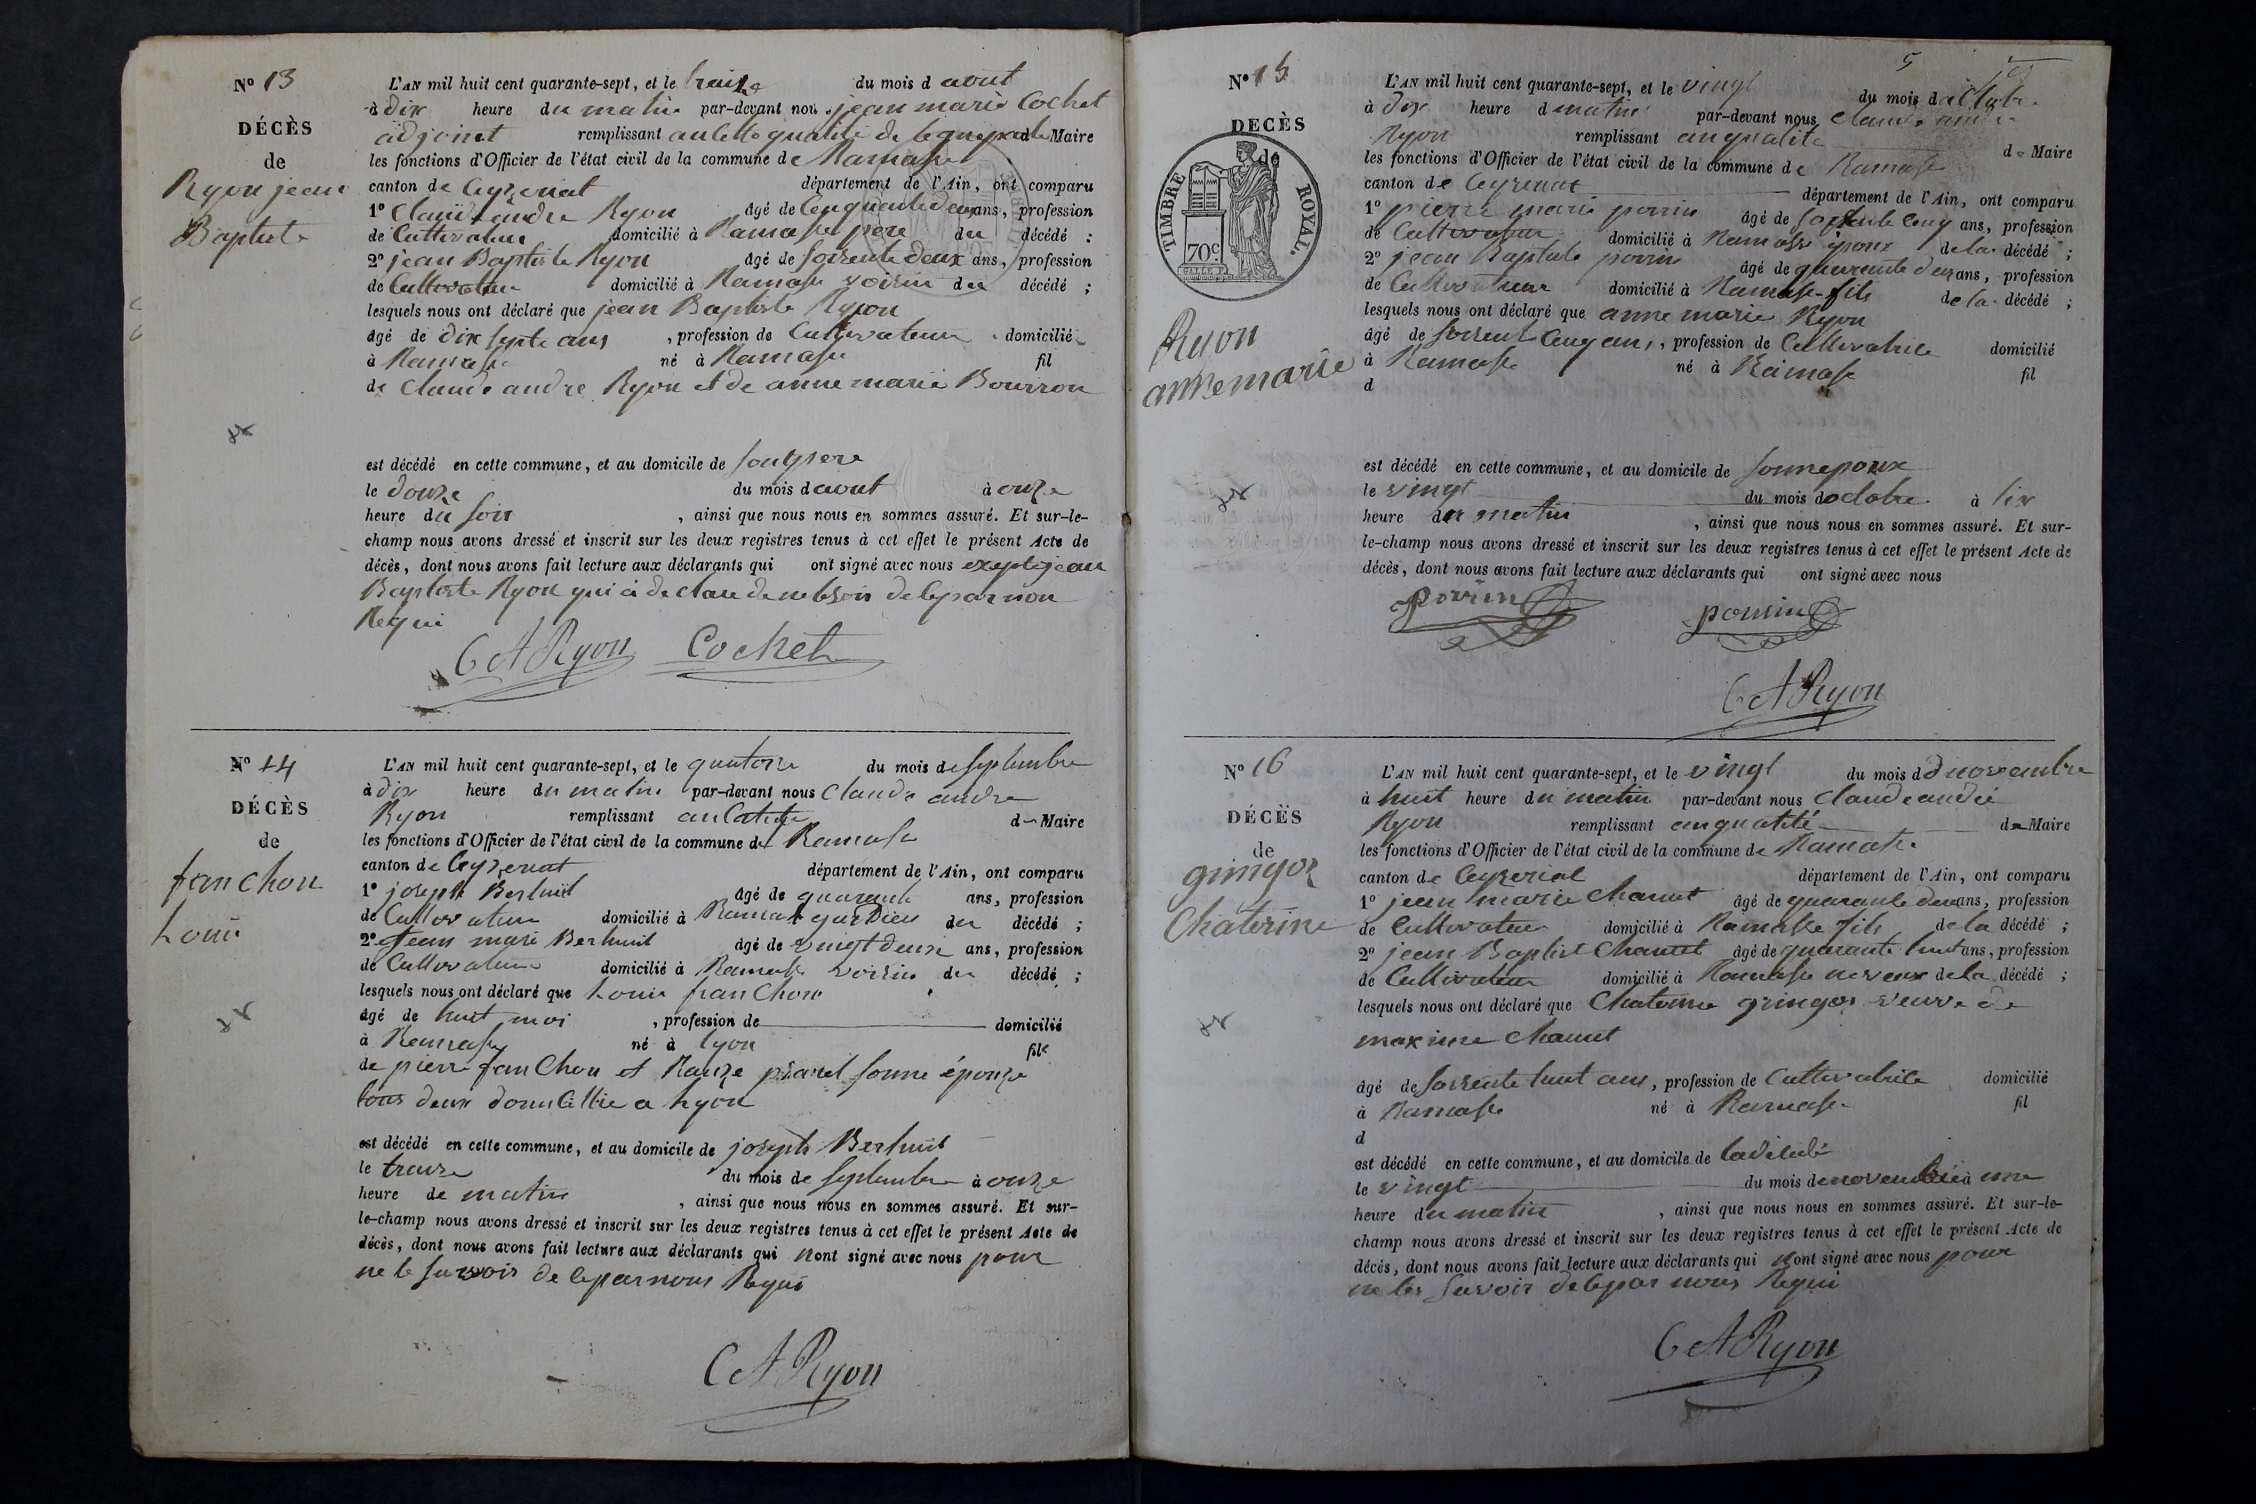 Nº 13
DÉCÈS
de
Ryon jean
Baptiste
L'AN mil huit cent quarante-sept, et le traize du mois d aout
à dix heure du matin par-devant nous jean marie Cochet
adjoint remplissant de Maire
les fonctions d'Officier de l'état civil de la commune de Ramasse
canton de Ceyzeriat département de l'Ain, ont comparu
1º Claude andre Ryon âgé de Cenquante deux ans, profession
de Cultivateur domicilié à Ramasse pere du décédé ;
2º jean Baptiste Ryon âgé de soixente deux ans, profession
de Cultivateur domicilié à Ramasse voisin du décédé ;
lesquels nous ont déclaré que jean Baptiste Ryon
âgé de dix septe ans , profession de Cultivateur domicilié
à Ramasse né à Ramasse fil
de Claude andre Ryon et de anne marie Bourron
est décédé en cette commune, et au domicile de son pere
le douze du mois d aout à onze
heure du soir , ainsi que nous nous en sommes assuré. Et sur-le-
champ nous avons dressé et inscrit sur les deux registres tenus à cet effet le présent Acte de
décès, dont nous avons fait lecture aux déclarants qui ont signé avec nous exepte jean
Baptiste Ryon qui à declare de ne le savoir de le par nou
Requi
C A Ryon Cochet
Nº 14
DÉCÈS
de
fanchon
Louis
L'AN mil huit cent quarante-sept, et le quatorze du mois de septembre
à dix heure du matin par-devant nous Claude andre
Ryon remplissant de Maire
les fonctions d'Officier de l'état civil de la commune de Ramasse
canton de Ceyzeriat département de l'Ain, ont comparu
1º joseph Berhuit âgé de quarente ans, profession
de Cultivateur domicilié à Ramasse gardien du décédé ;
2º Jean marie Berhuit âgé de vingt deux ans, profession
de Cultivateur domicilié à Ramasse voisin du décédé ;
lesquels nous ont déclaré que Louis fanchon
âgé de huit moi , profession de domicilié
à Ramasse né à Lyon fils
de pierre fanchon et sonne épouze
tous deux domicillie a Lyon
est décédé en cette commune, et au domicile de joseph Berhuit
le traize du mois de septembre à onze
heure de matin , ainsi que nous nous en sommes assuré. Et sur-
le-champ nous avons dressé et inscrit sur les deux registres tenus à cet effet le présent Acte de
décès, dont nous avons fait lecture aux déclarants qui nont signé avec nous pour
ne le savoir de le par nous Requi
C A Ryon
5
Nº 15
DECÈS
de
TIMBRE ROYAL.
70c
Ryon
anne marie
L'AN mil huit cent quarante-sept, et le vingt du mois d octobre
à dix heure d matin par-devant nous Claude andre
Ryon remplissant en qualité de Maire
les fonctions d'Officier de l'état civil de la commune de Ramasse
canton de Ceyzeriat département de l'Ain, ont comparu
1º pierre marie perrin âgé de soixente cenq ans, profession
de Cultivateur domicilié à Ramasse époux de la décédé ;
2º jean Baptiste perrin âgé de quarente deux ans, profession
de Cultivateur domicilié à Ramasse fils de la décédé ;
lesquels nous ont déclaré que anne marie Ryon
âgé de soixent cenq ans, profession de Cultivatrice domicilié
à Ramasse né à Ramasse fil
d
est décédé en cette commune, et au domicile de sonne poux
le vingt du mois d octobre à six
heure du matin , ainsi que nous nous en sommes assuré. Et sur-
le-champ nous avons dressé et inscrit sur les deux registres tenus à cet effet le présent Acte de
décès, dont nous avons fait lecture aux déclarants qui ont signé avec nous
perrin perrin
C A Ryon
Nº 16
DÉCÈS
de
gringoz
Chaterine
L'AN mil huit cent quarante-sept, et le vingt du mois d novembre
à huit heure du matin par-devant nous Claude andré
Ryon remplissant en qualité de Maire
les fonctions d'Officier de l'état civil de la commune de Ramasse
canton de Ceyzeriat département de l'Ain, ont comparu
1º jean marie Chanut âgé de quarante deux ans, profession
de Cultivateur domicilié à Ramasse fils de la décédé ;
2º jean Baptist Chanut âgé de quarante huit ans, profession
de Cultivateur domicilié à Ramasse neveux de la décédé ;
lesquels nous ont déclaré que Chaterine gringoz veuve de
maxime Chanut
âgé de soixente huit ans, profession de Cultivatrice domicilié
à Ramasse né à Ramasse fil
d
est décédé en cette commune, et au domicile de
le vingt du mois de novembre à une
heure du matin , ainsi que nous nous en sommes assuré. Et sur-le-
champ nous avons dressé et inscrit sur les deux registres tenus à cet effet le présent Acte de
décès, dont nous avons fait lecture aux déclarants qui nont signé avec nous pour
ne les savoir de le par nous Requi
C A Ryon